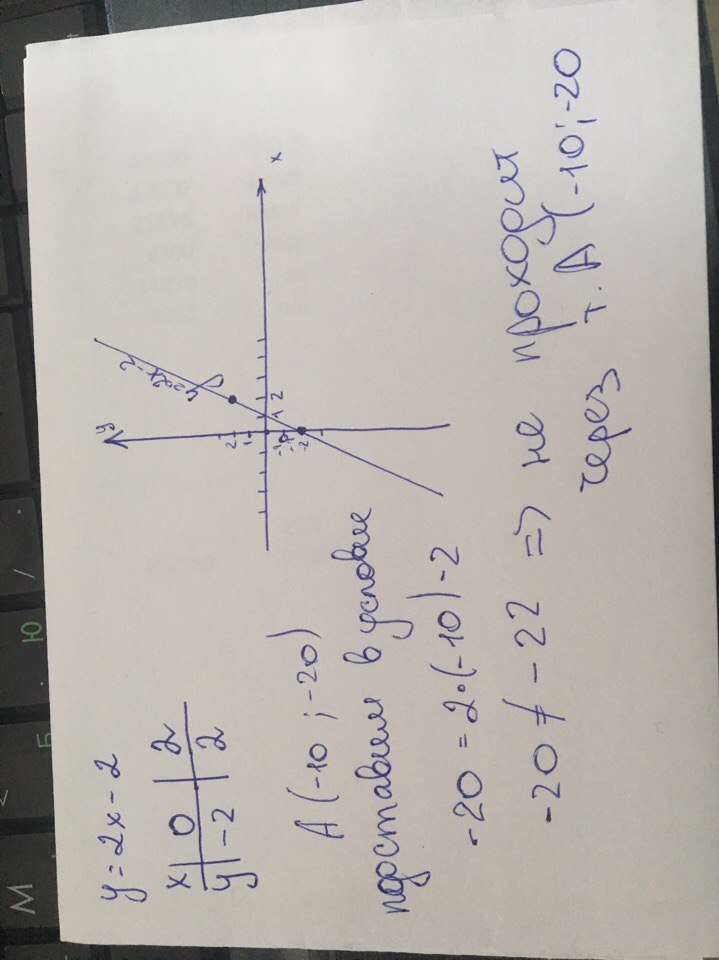 y = 2x - 2
x | 0 | 2
y | -2 | 2
y
x
y=2x-2
2
1
1 2
-1
-2
A (-10 ; -20)
подставим в условие
-20 = 2·(-10) -2
-20 ≠ -22 => не проходит
через т. A (-10; -20
М Б Ю . /